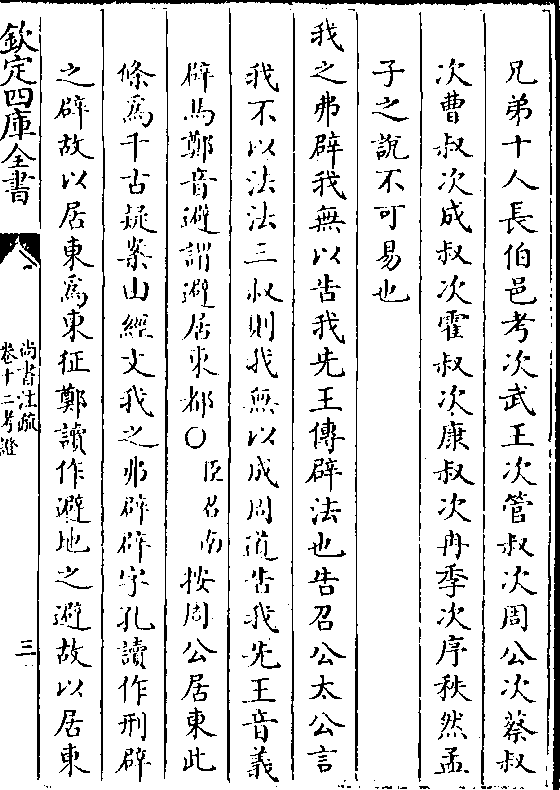 兄弟十人長伯邑考次武王次管叔次周公次蔡叔
次曹叔次成叔次霍叔次康叔次冉季次序秩然孟
子之說不可易也
我之弗辟我無以告我先王傳辟法也告召公太公言
我不以法法三叔則我無以成周道告我先王音義
辟馬鄭音避謂避居東都○臣召南按周公居東此
條爲千古疑案山經文我之弗辟辟字孔讀作刑辟
之辟故以居東爲東征鄭讀作避地之避故以居東
欽定四庫全書
尚書注疏
卷十二考證
三